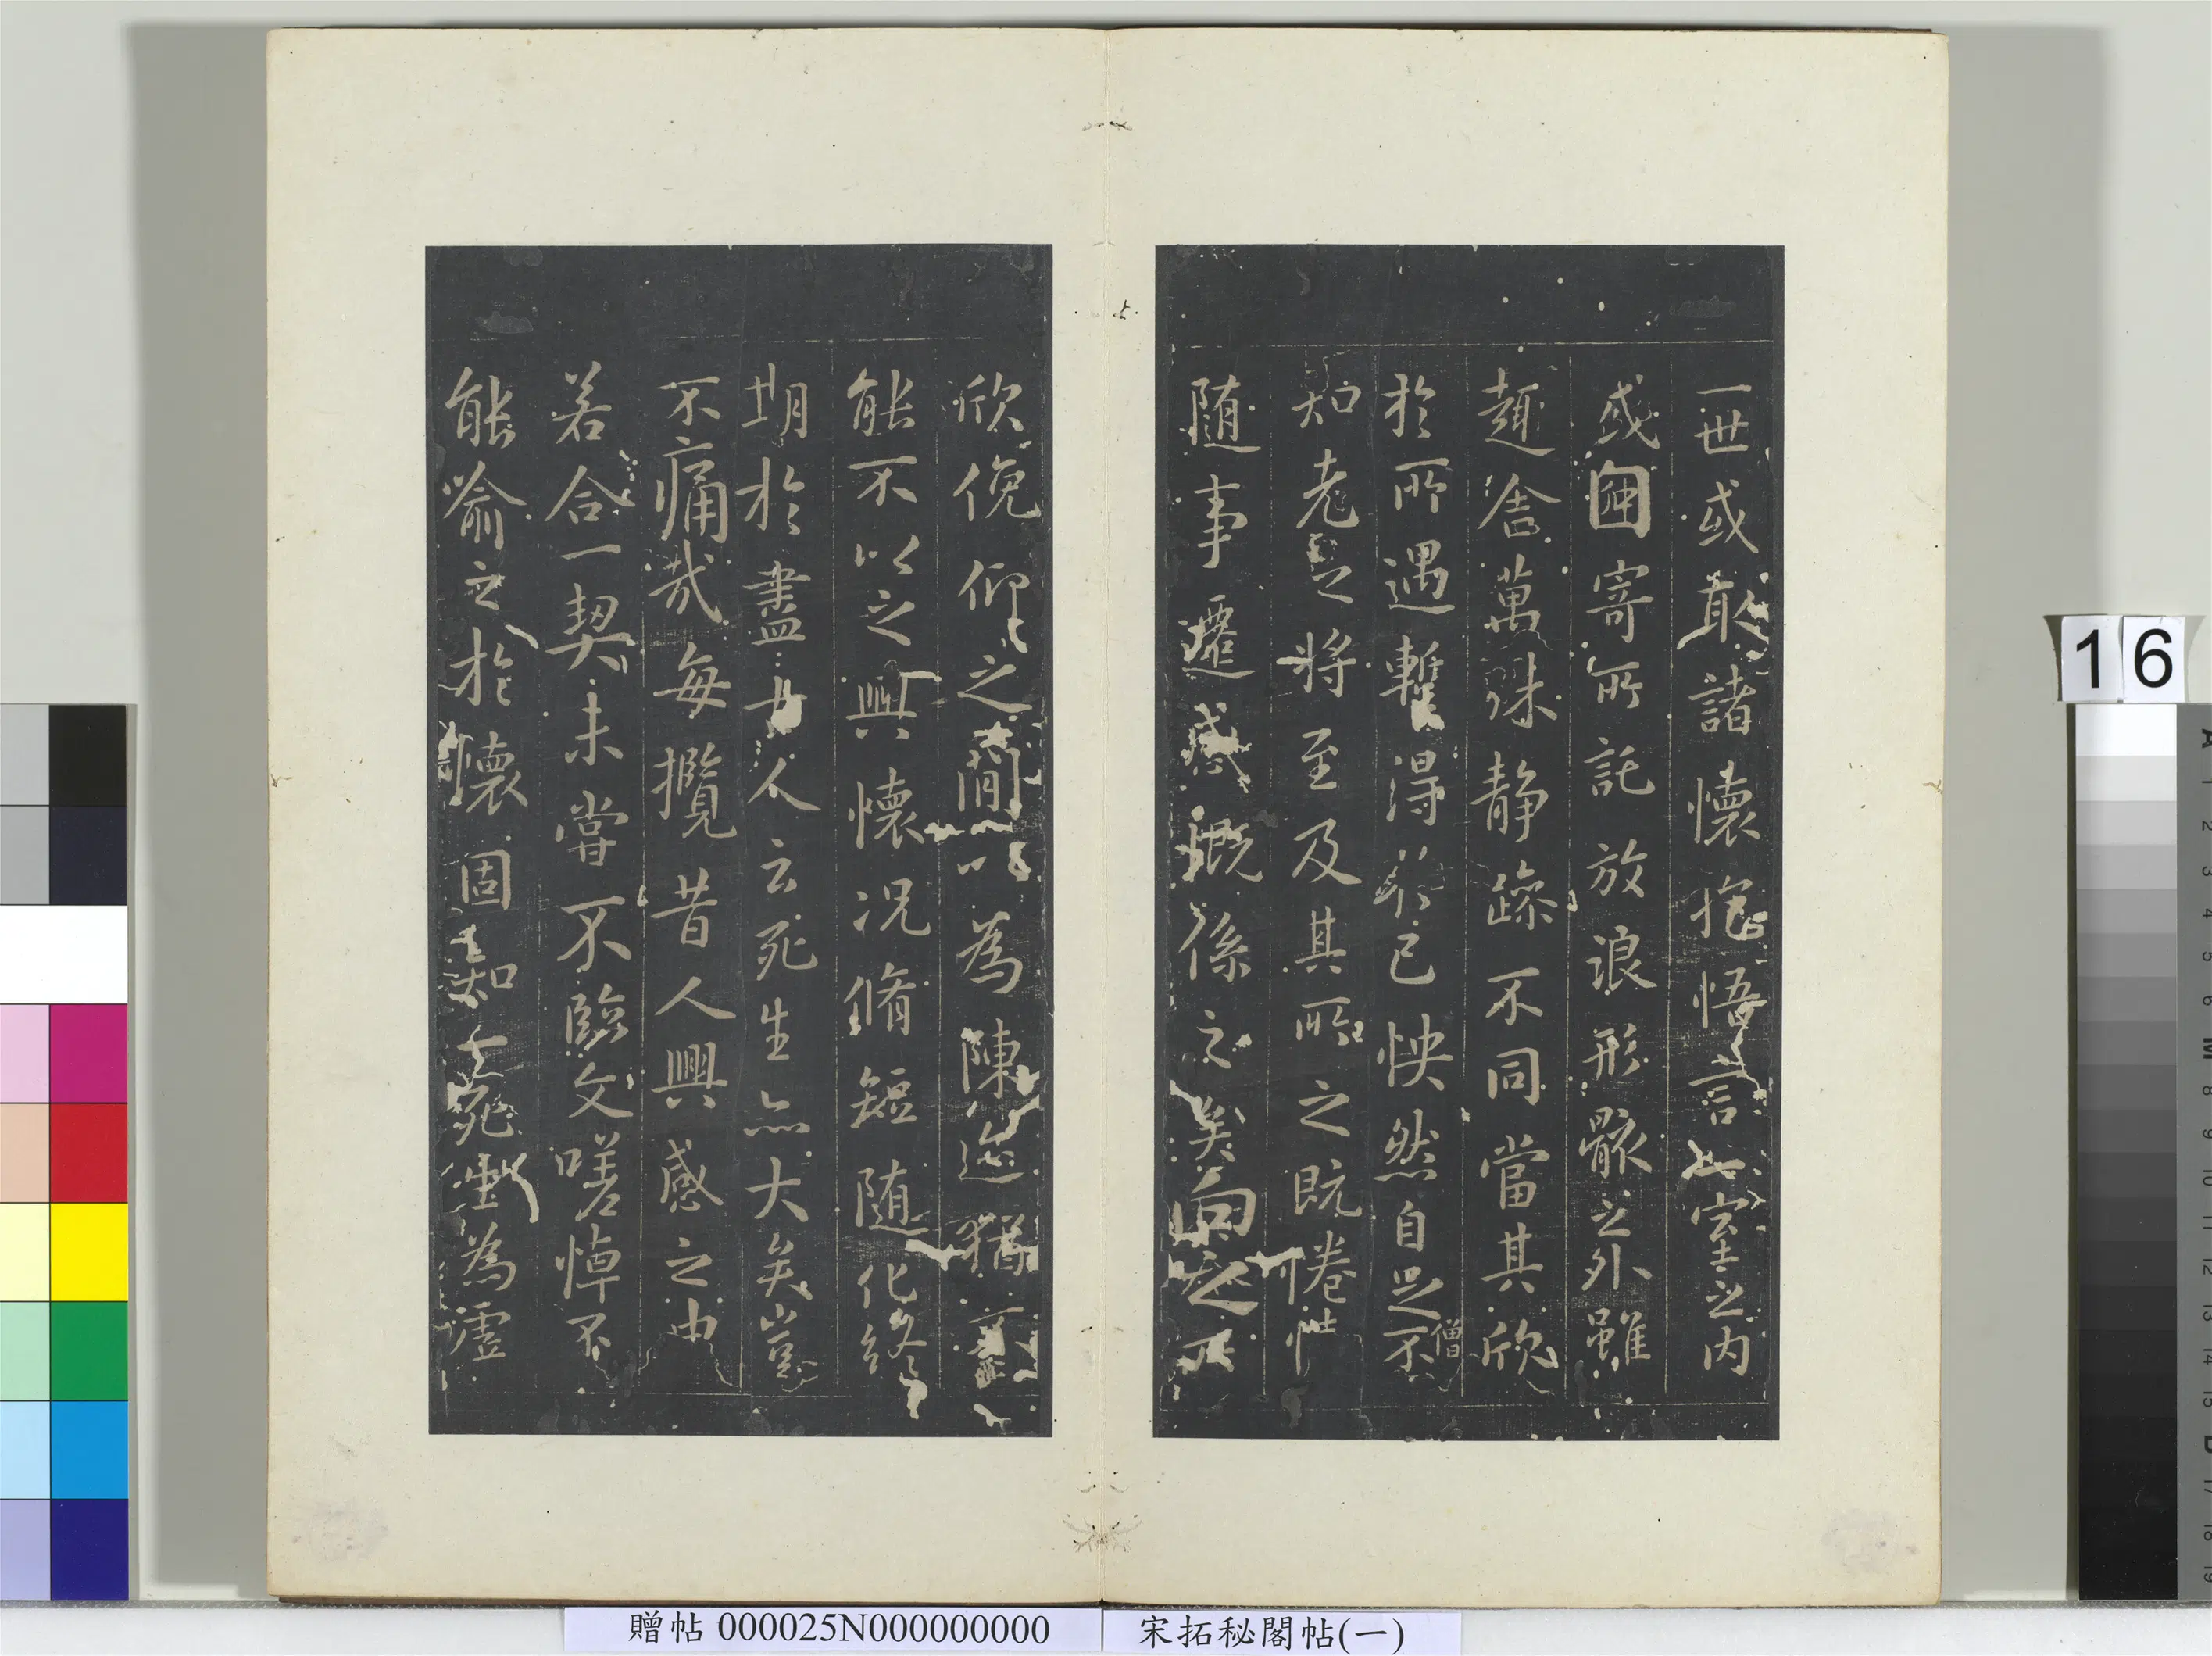 一世或取諸懷抱悟言一室之內
或因寄所託放浪形骸之外雖
趣舍萬殊靜躁不同當其欣
於所遇暫得於己怏然自足不
僧
知老之將至及其所之既惓情
隨事遷感慨係之矣向之所
欣俛仰之閒以為陳迹猶不
能不以之興懷況脩短隨化終
期於盡古人云死生亦大矣豈
不痛哉每攬昔人興感之由
若合一契未嘗不臨文嗟悼不
能喻之於懷固知一死生為虛
16
贈帖 000025N000000000
宋拓秘閣帖(一)